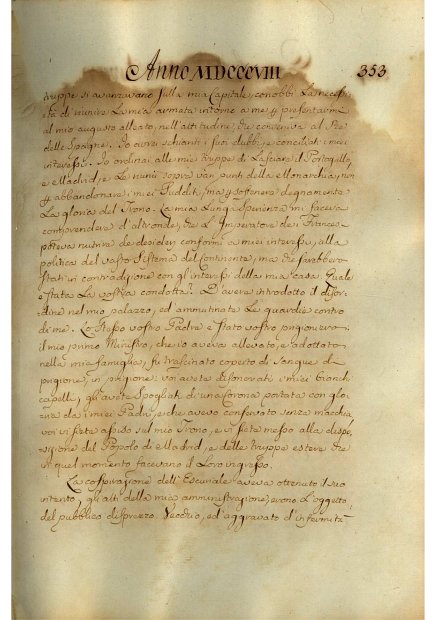 Anno MDCCCVIII 353
truppe si avanzavano sulla mia Capitale, conobbi la necessi
tà di riunire la mia armata intorno a me, presentarmi
al mio augusto alleato nell'attitudine, che conveniva al Re
delle Spagne. Io avrei schiariti i suoi dubbj, e conciliati i miei
interessi. Io ordinai alle mie truppe di lasciare il Portogallo,
e Madrid, e le riunii sopra varj punti della Monarchia, non
abbandonare i miei sudditi, ma sostenere degnamente
la gloria del Trono. La mia lunga sperienza mi faceva
comprendere d'altronde, che l'Imperatore de' Francesi
poteva nutrire de' desiderj conformi a' miei interessi, alla
politica del vasto sistema del continente, ma che sarebbero
stati in contradizione con gl'interessi della mia casa. Quale
è stata la vostra condotta? D'avere introdotto il disor
dine nel mio palazzo, ed ammutinate le guardie contro
di me. Lo stesso vostro Padre è stato vostro prigioniero:
il mio primo Ministro, che io aveva allevato, e adottato
nella mia famiglia, fu trascinato coperto di sangue di
prigione, in prigione: voi avete disonorati i miei bianchi
capelli, gli avete spogliati di una corona portata con glo
ria da i miei Padri, e che avevo conservato senza macchia,
voi vi siete assiso sul mio Trono, e vi siete messo alla dispo
sizione del Popolo di Madrid, e delle truppe estere che
in quel momento facevano il loro ingresso.
La cospirazione dell'Escuriale aveva ottenuto il suo
intento, gli atti della mia amministrazione erano l'oggetto
del pubblico disprezzo. Vecchio, ed aggravato d'infermità